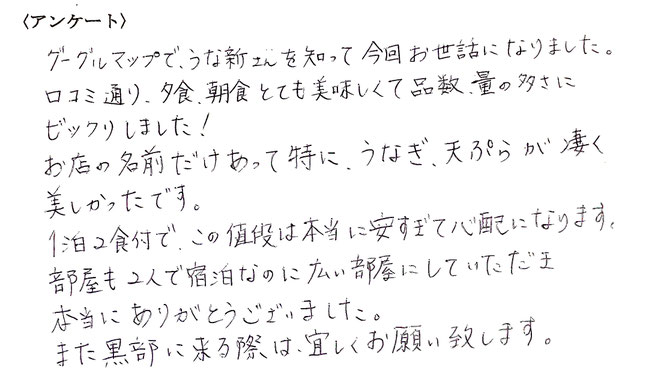 〈アンケート〉
グーグルマップで、うな新さんを知って今回お世話になりました。
口コミ通り、夕食、朝食とても美味しくて品数、量の多さに
ビックリしました！
お店の名前だけあって特に、うなぎ、天ぷらが凄く
美しかったです。
1泊2食付で、この値段は本当に安すぎて心配になります。
部屋も2人で宿泊なのに広い部屋にしていただき
本当にありがとうございました。
また黒部に来る際は、宜しくお願い致します。